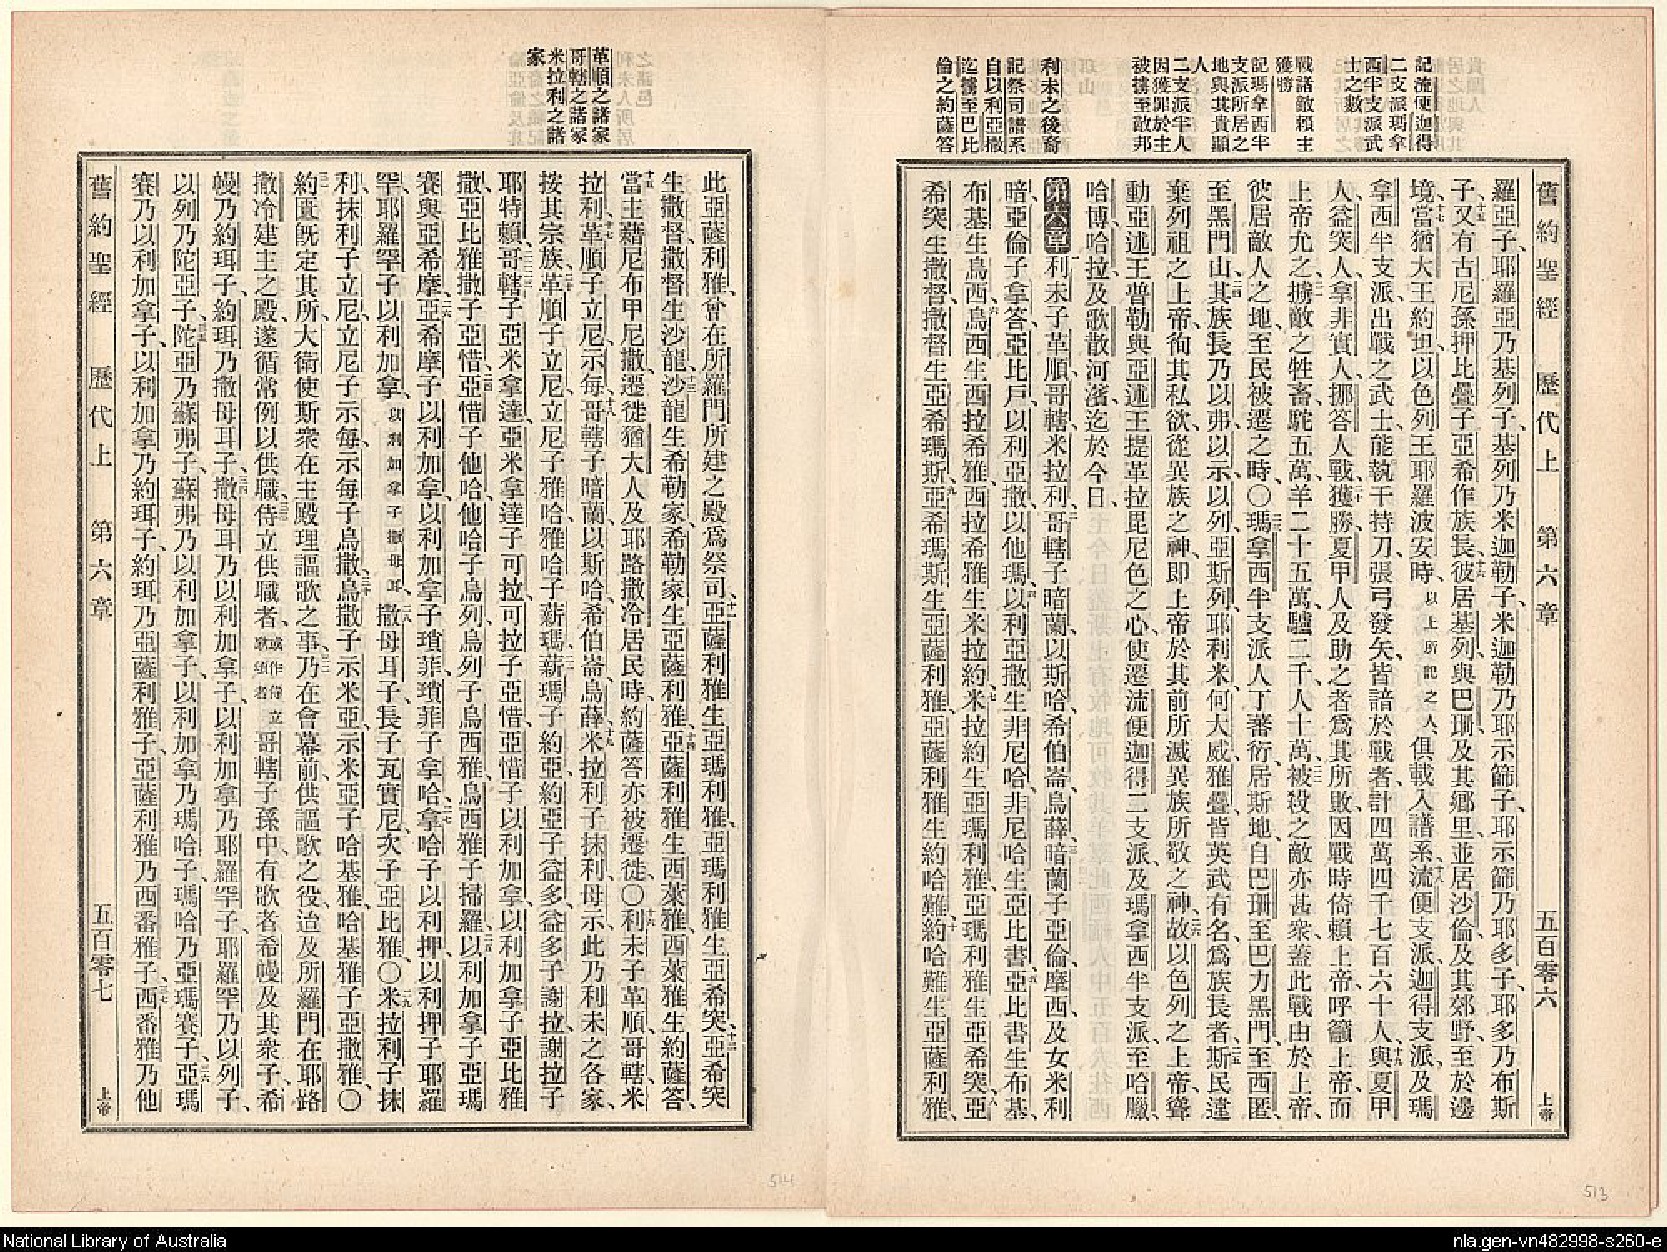 記流便迦得
二支派瑪拿
西半支派武
士之數
戰諸敵賴主
獲勝
記瑪拿西半
支派所居之
地與其貴顯
人
二支派半人
因獲罪於主
被擄至敵邦
利未之後裔
記祭司譜系
自以利亞撒
迄擄至巴比
倫之約薩答
舊約聖經 歷代上 第六章 五百零六 上帝
羅亞子、耶羅亞乃基列子、基列乃米迦勒子、米迦勒乃耶示篩子、耶示篩乃耶多子、耶多乃布斯
子、又有古尼孫押比疊子亞希作族長、彼居基列與巴珊、及其鄉里、並居沙倫、及其郊野、至於邊
境、當猶大王約坦、以色列王耶羅波安時、以上所記之人俱載入譜系、流便支派、迦得支派、及瑪
拿西半支派出戰之武士、能執干持刀、張弓發矢、皆諳於戰者、計四萬四千七百六十人、與夏甲
人、益突人、拿非實人、挪答人戰獲勝、夏甲人及助之者、爲其所敗、因戰時倚賴上帝、呼籲上帝、而
上帝允之、擄敵之牲畜、駝五萬、羊二十五萬、驢二千、人十萬、被殺之敵亦甚衆、蓋此戰由於上帝、
彼居敵人之地、至民被遷之時、〇瑪拿西半支派人丁蕃衍、居斯地、自巴珊至巴力黑門、至西匿
至黑門山、其族長乃以弗、以示、以列、亞斯列、耶利米、何大威雅疊、皆英武有名、爲族長者、斯民違
棄列祖之上帝、徇其私欲、從異族之神、即上帝於其前所滅異族所敬之神、故以色列之上帝、聳
動亞述王普勒與亞述王提革拉毘尼色之心、使遷流便迦得二支派、及瑪拿西半支派、至哈臘、
哈博、哈拉、及歌散河濱、迄於今日、
第六章 利未子革順、哥轄、米拉利、哥轄子暗蘭、以斯哈、希伯崙、烏薛、暗蘭子亞倫、摩西、及女米利
暗、亞倫子拿答、亞比戶、以利亞撒、以他瑪、以利亞撒生非尼哈、非尼哈生亞比書、亞比書生布基、
布基生烏西、烏西生西拉希雅、西拉希雅生米拉約、米拉約生亞瑪利雅、亞瑪利雅生亞希突、亞
希突生撒督、撒督生亞希瑪斯、亞希瑪斯生亞薩利雅、亞薩利雅生約哈難、約哈難生亞薩利雅、
革順之諸家
哥轄之諸家
米拉利之諸
家
此亞薩利雅、曾在所羅門所建之殿爲祭司、亞薩利雅生亞瑪利雅、亞瑪利雅生亞希突、亞希突
生撒督、撒督生沙龍、沙龍生希勒家、希勒家生亞薩利雅、亞薩利雅生西萊雅、西萊雅生約薩答、
當主藉尼布甲尼撒、遷徙猶大人及耶路撒冷居民時、約薩答亦被遷徙、〇利未子革順、哥轄、米
拉利、革順子立尼、示每、哥轄子暗蘭、以斯哈、希伯崙、烏薛、米拉利子抹利、母示、此乃利未之各家、
按其宗族、革順子立尼、立尼子雅哈、雅哈子薪瑪、薪瑪子約亞、約亞子益多、益多子謝拉、謝拉子
耶特賴、哥轄子亞米拿達、亞米拿達子可拉、可拉子亞惜、亞惜子以利加拿、以利加拿子亞比雅
撒、亞比雅撒子亞惜、亞惜子他哈、他哈子烏列、烏列子烏西雅、烏西雅子掃羅、以利加拿子亞瑪
賽與亞希摩、亞希摩子以利加拿、以利加拿子瑣菲、瑣菲子拿哈、拿哈子以利押、以利押子耶羅
罕、耶羅罕子以利加拿、以利加拿子撒母耳、撒母耳子、長子瓦實尼、次子亞比雅、〇米拉利子抹
利、抹利子立尼、立尼子示每、示每子烏撒、烏撒子示米亞、示米亞子哈基雅、哈基雅子亞撒雅、〇
約匱既定其所、大衛使斯衆在主殿理謳歌之事、乃在會幕前、供謳歌之役、迨及所羅門在耶路
撒冷建主之殿、遂循常例以供職、侍立供職者、或作侍立承班者哥轄子孫中有歌者希幔、及其衆子、希
幔乃約珥子、約珥乃撒母耳子、撒母耳乃以利加拿子、以利加拿乃耶羅罕子、耶羅罕乃以列子、
以列乃陀亞子、陀亞乃蘇弗子、蘇弗乃以利加拿子、以利加拿乃瑪哈子、瑪哈乃亞瑪賽子、亞瑪
賽乃以利加拿子、以利加拿乃約珥子、約珥乃亞薩利雅子、亞薩利雅乃西番雅子、西番雅乃他
舊約聖經 歷代上 第六章 五百零七 上帝
514
513
National Library of Australia
nla.gen-vn482998-s260-e